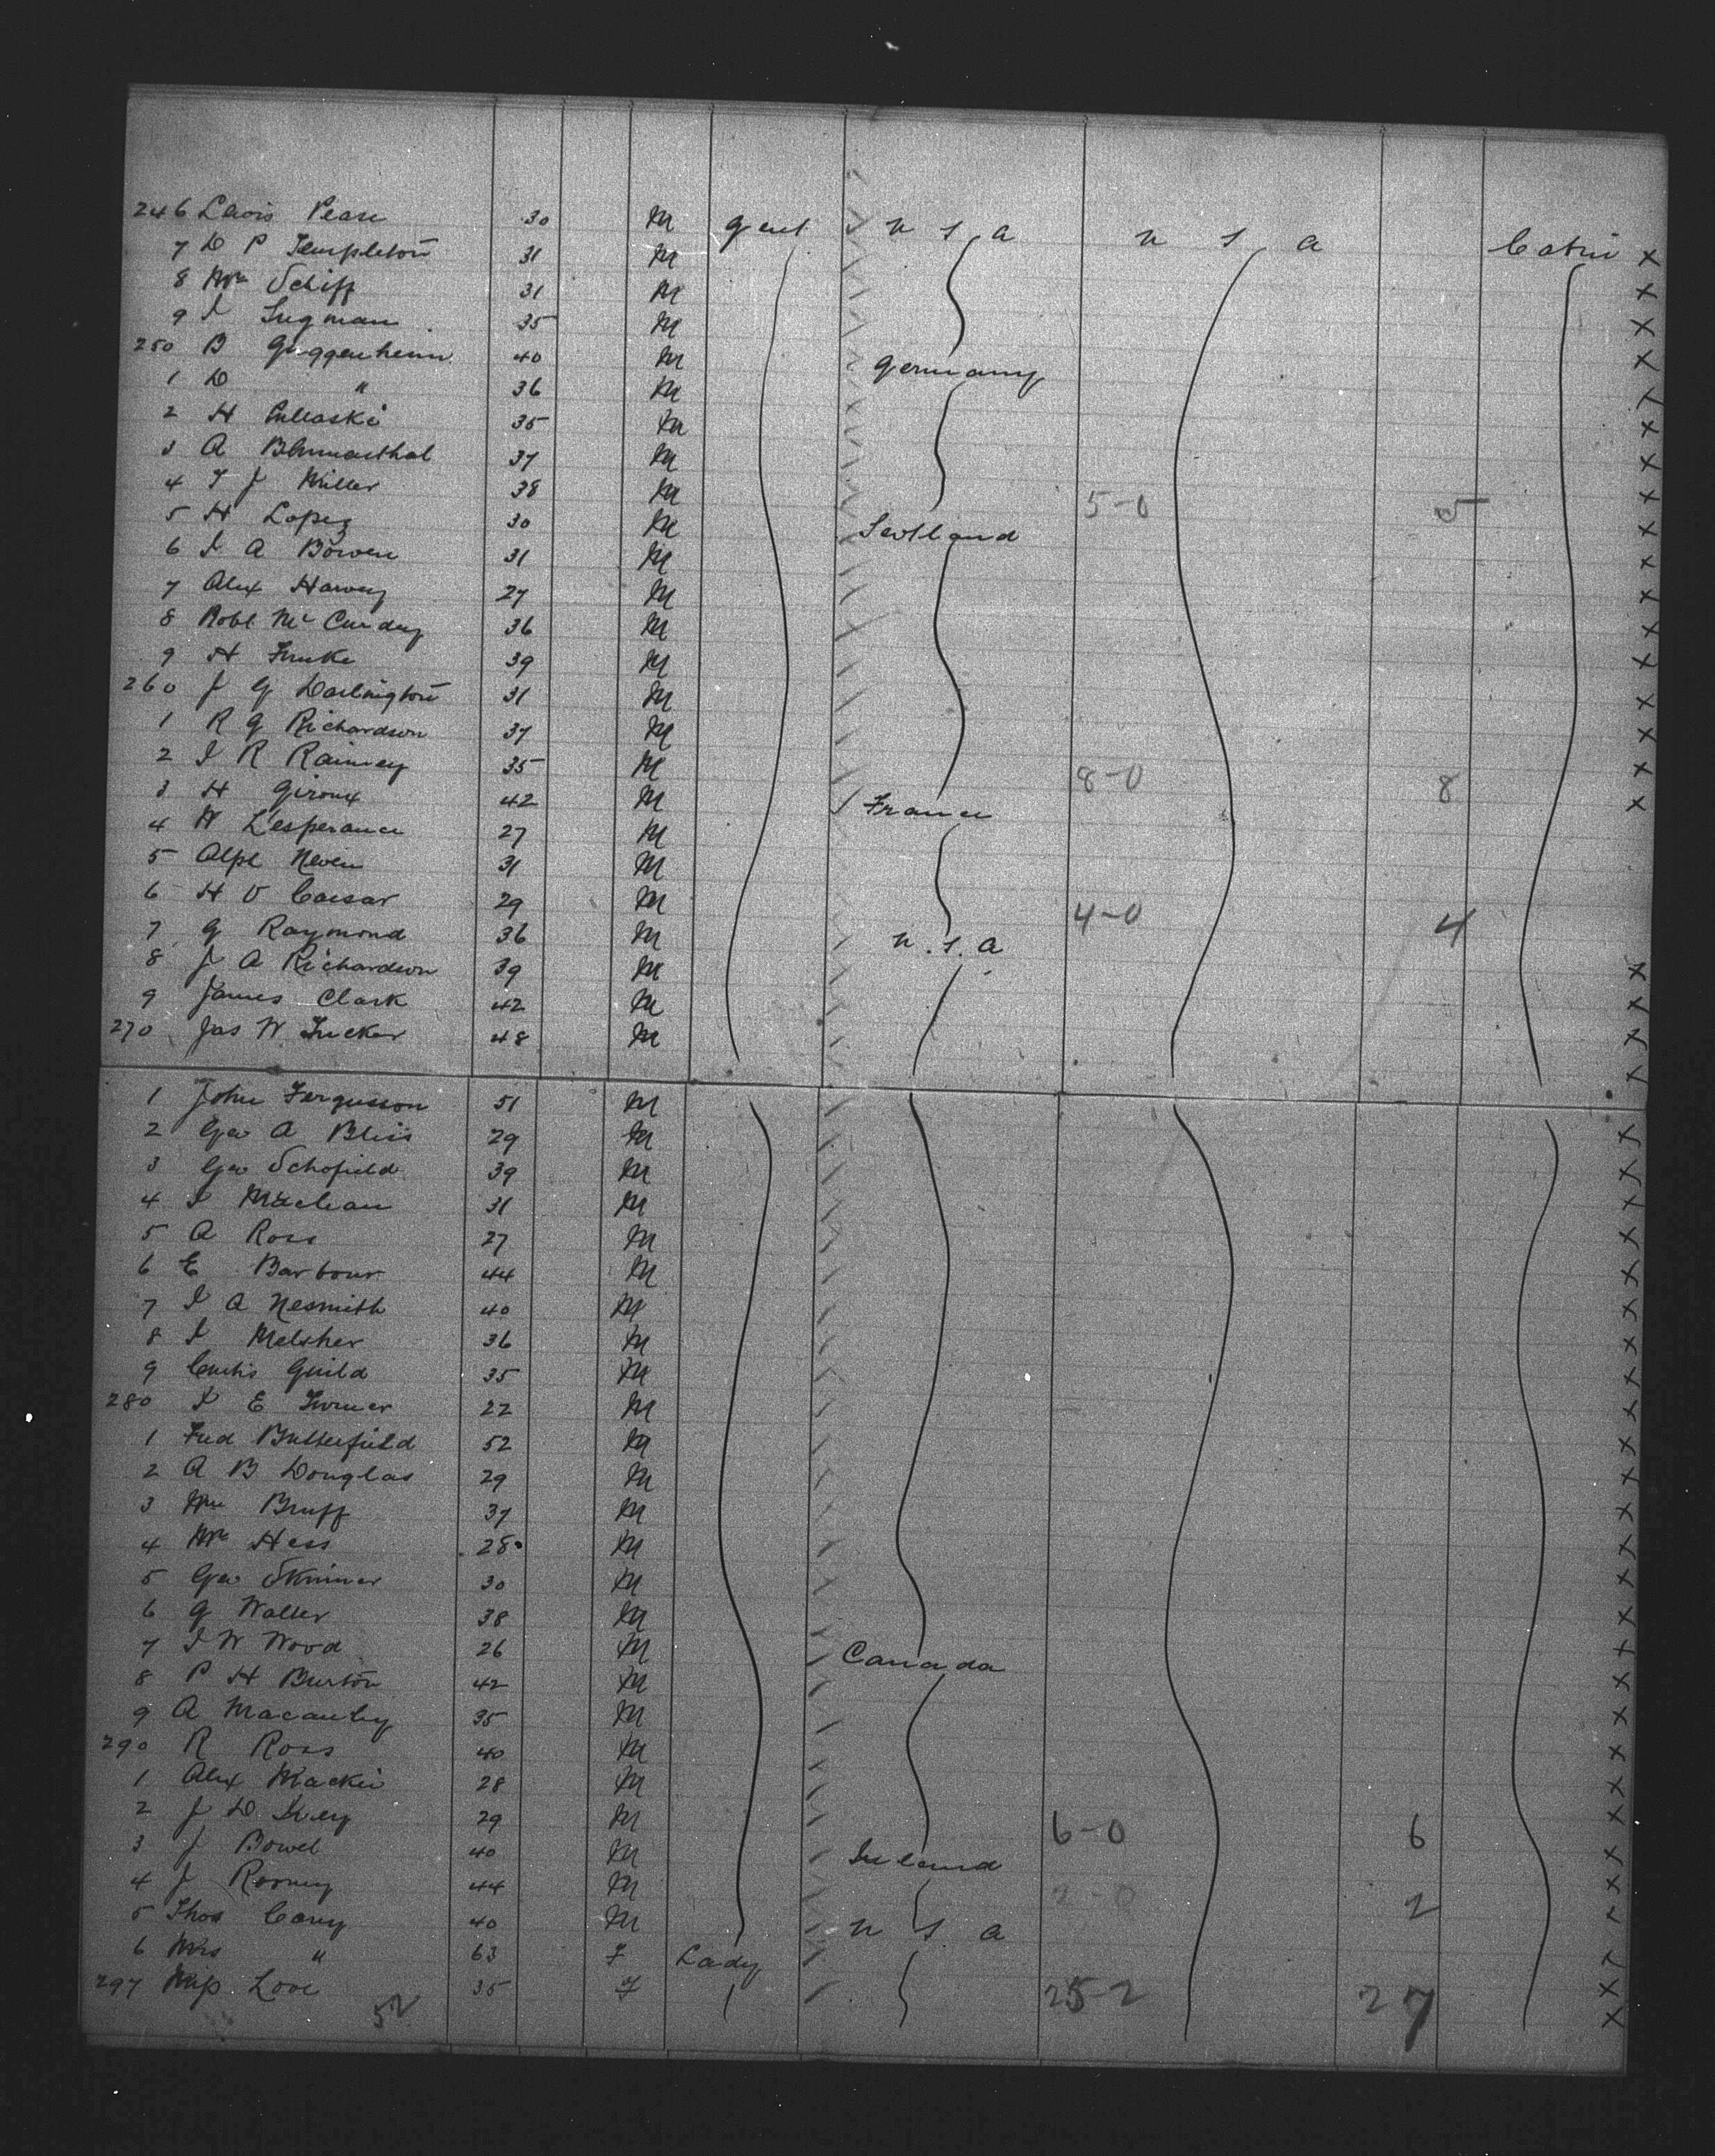 246 Lewis Pease 30 M gent U S A U S A Cabin
7 D P Templeton 31 M X
8 Mr Schiff 31 M X
9 I Sugman 35 M X
250 B Guggenheim 40 M Germany X
1 D " 36 M X
2 H Pullaski 35 M X
3 A Blumenthal 37 M X
4 T J Miller 38 M 5-0 5 X
5 H Lopez 30 M Scotland X
6 I A Bowen 31 M X
7 Alex Harvey 27 M X
8 Robt Mc Curdy 36 M X
9 H Funke 39 M X
260 J G Darlington 31 M X
1 R G Richardson 37 M X
2 I R Rainey 35 M 8-0 8 X
3 H Giroux 42 M France X
4 H L'esperance 27 M
5 Alph 31 M
6 H O Caesar 29 M 4-0 4
7 G Raymond 36 M U.S.A
8 J A Richardson 39 M X
9 James Clark 42 M X
270 Jas W. Tucker 48 M X
1 John Fergusson 51 M
2 Geo A Bliss 29 M X
3 Geo Schofield 39 M X
4 I Maclean 31 M X
5 A Ross 27 M X
6 E Barbour 44 M X
7 I A Nesmith 40 M X
8 I Melsher 36 M X
9 Curtis Guild 35 M X
280 I E Turner 22 M X
1 Fred Butterfield 52 M X
2 A B Douglas 29 M X
3 Wm Bruff 37 M X
4 Mr Hess 28 M X
5 Geo Skinner 30 M X
6 G Walter 38 M X
7 I W Wood 26 M Canada X
8 P H Burton 42 M X
9 A Macauley 35 M X
290 R Ross 40 M X
1 Alex Mackie 28 M X
2 J D Ivey 29 M 6-0 6 X
3 J Bowel 40 M Ireland X
4 J Rooney 44 M 2-0 2 X
5 Thos Carey 40 M U S A
6 Mrs " 63 F Lady X
297 Miss Love 35 F 25-2 27 X
52